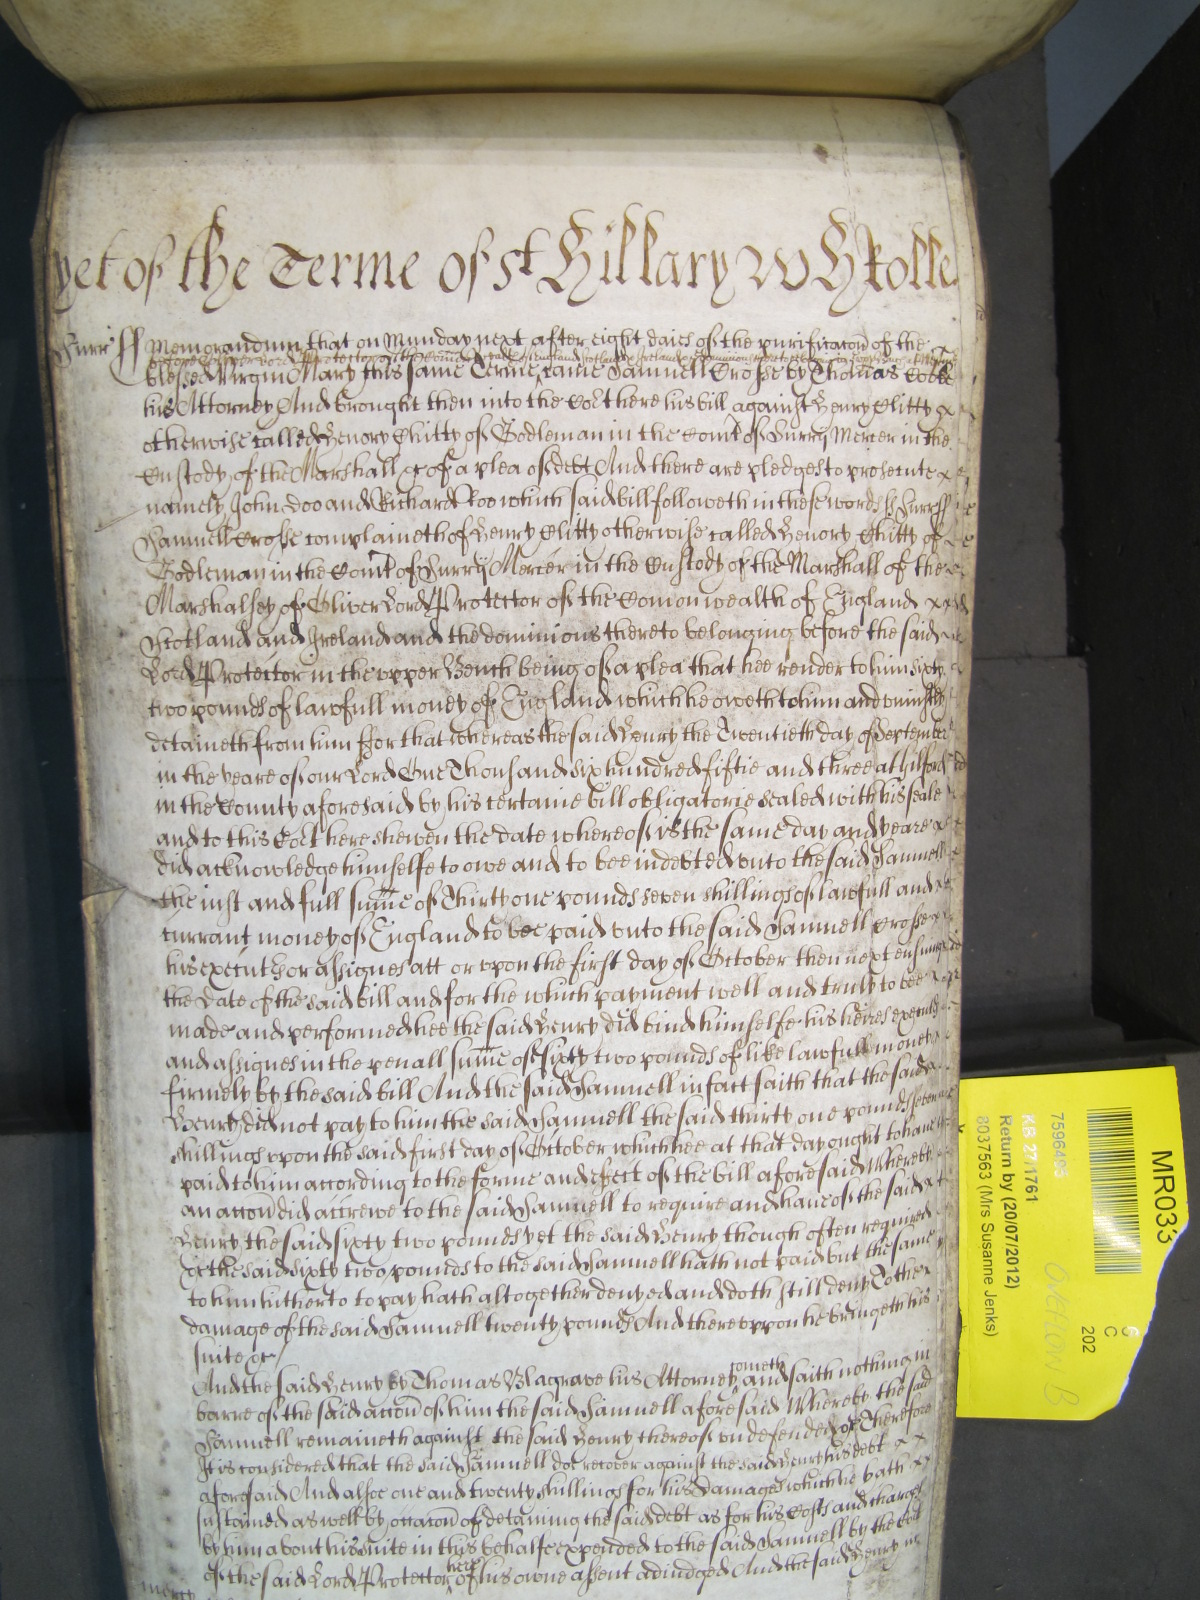 yet of the Terme of st Hillary WHRolle
Surr' ss Memorandum that on Munday next after eight daies of the purificacon of the
before Oliver Lord Protector of the Comon wealth of England Scotland & Ireland & the dominions thereto belonging
blessed Virgin Mary this same Terme came Samuell Crosse by Thomas
his Attorney And brought then into the Co't here his bill against Henry Chitty
otherwise called Henory Chitty of Godleman in the Com't of Surry Mercer in the
Custody of the Marshall &c of a plea of debt And there are pledges to prosecute
namely John Doo and Richard Roo which said bill followeth in these words ss Surr' ss
Samuell Crosse complaineth of Henry Chitty otherwise called Henory Chitty of
Godleman in the Com't of Surry Mercer in the Custody of the Marshall of the
Marshalsey of Oliver Lord Protector of the Comonwealth of England
Scotland and Ireland and the dominions thereto belonging before the said
Lord Protector in the upper Bench being of a plea that hee render to him sixty
two pounds of lawfull money of England which he oweth to him and uniustly
detaineth from him ffor that whereas the said Henry the Twentieth day of September
in the yeare of our Lord One Thousand six hundred fiftie and three at Guilford
in the County aforesaid by his certaine bill obligatorie sealed with his seale
and to this Co't here shewen the date whereof is the same day and yeare
did acknowledge himselfe to owe and to bee indebted unto the said Samuell
the iust and full sume of Thirty one pounds seven shillings of lawfull and
currant money of England to bee paid unto the said Samuell Crosse
his execut'or assignes att or upon the first day of October then next ensuing
the date of the said bill and for the which payment well and truly to bee
made and performed hee the said Henry did bind himselfe his heires execut
and assignes in the penall sume of sixty two pounds of like lawfull money
firmely by the said bill And the said Samuell in fact saith that the said
Henry did not pay to him the said Samuell the said thirty one pounds seven
shillings upon the said first day of October which hee at that day ought to have
paid to him according to the forme and effect of the bill aforesaid Whereby
an accon did accrewe to the said Samuell to require and have of the said
Henry the said sixty two pounds yet the said Henry though often required
&c the said sixty two pounds to the said Samuell hath not paid but the same
to him hitherto to pay hath altogether denyed and doth still deny To the
damage of the said Samuell twenty pounds And thereuppon he bringeth his
suite &c
And the said Henry by Thomas Blagrave his Attorney cometh and saith nothing in
barre of the said accon of him the said Samuell aforesaid Whereby the said
Samuell remaineth against the said Henry thereof undefended &c Therefore
It is considered that the said Samuell doe recover against the said Henry his debt
aforesaid And alsoe one and twenty shillings for his Damages which he hath
sustained as well by occacon of detaining the said debt as for his Costs and charges
by him about his suite in this behalfe expended to the said Samuell by the Co't
of the said Lord Protector here of his owne assent adiudged And the said Henry in
mercy
MR033
202
C
7596495
KB 27/1761
Return by (20/07/2012)
8037563 (Mrs Susanne Jenks)
OVERFLOW B